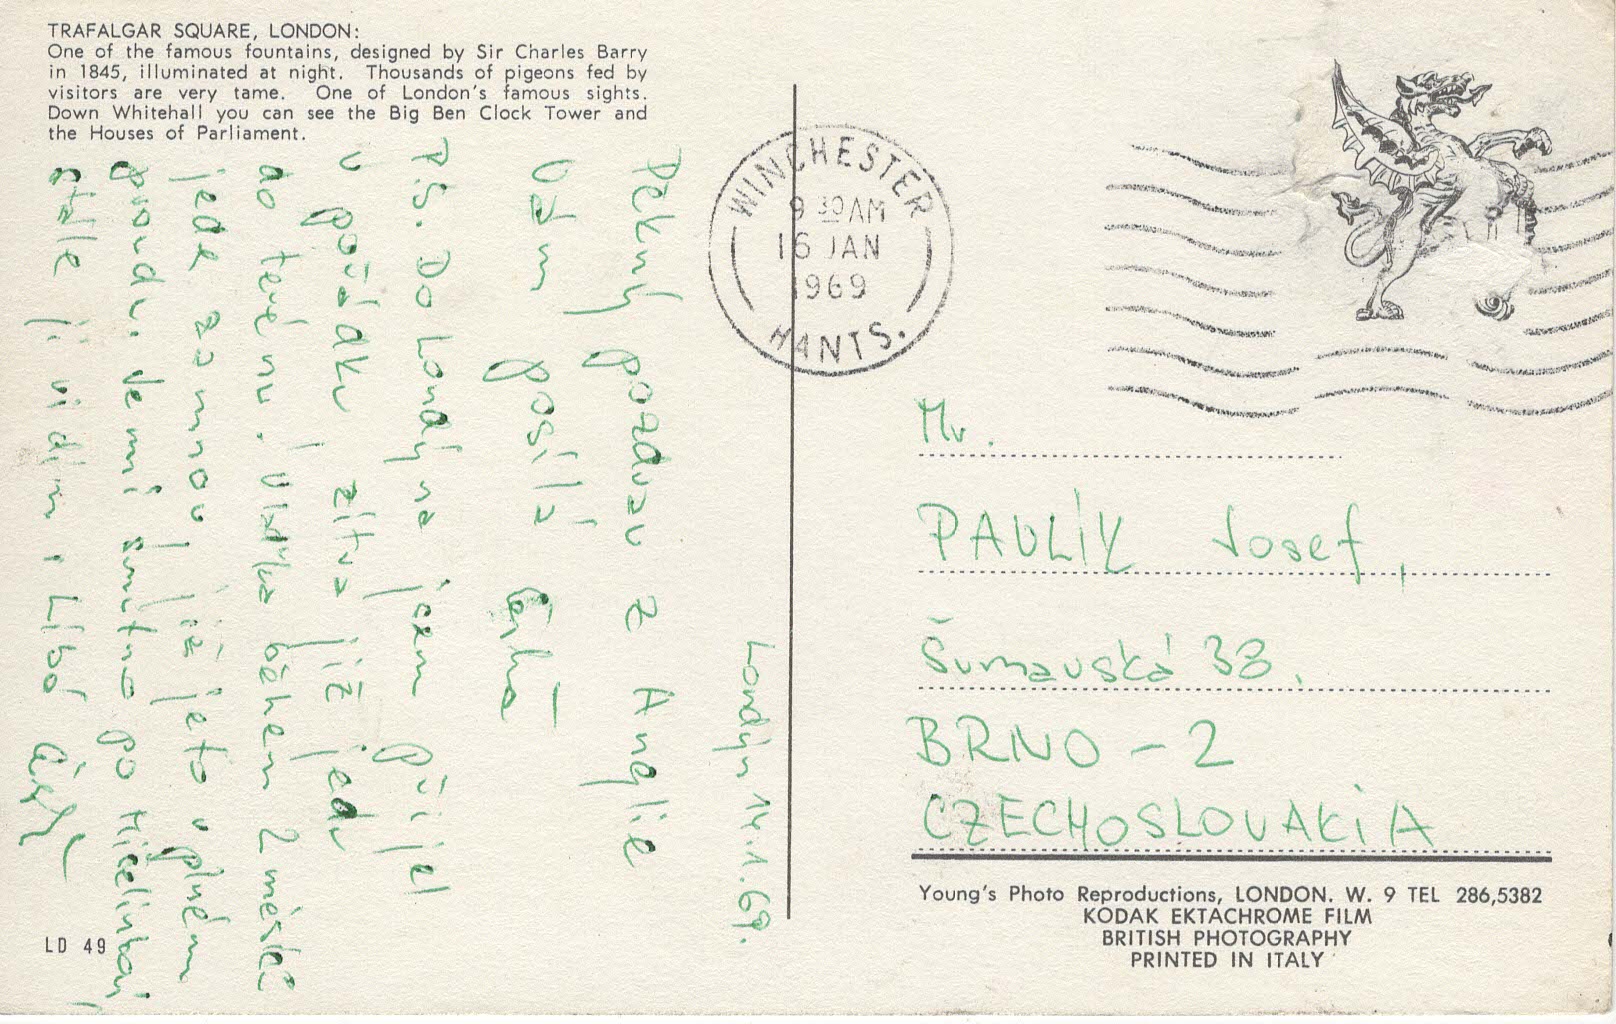 TRAFALGAR SQUARE, LONDON:
One of the famous fountains, designed by Sir Charles Barry
in 1845, illuminated at night. Thousands of pigeons fed by
visitors are very tame. One of London's famous sights.
Down Whitehall you can see the Big Ben Clock Tower and
the Houses of Parliament.
Londýn 14.1.69.
Pěkný pozdrav z Anglie
Vám posílá
P.S. Do Londýna jsem přijel
v pořádku, zítra již jedu
do terénu. Vlaďka během 2 měsíců
jede za mnou, již je to v plném
proudu. Je mi smutno po
stále ji vidím,
WINCHESTER
9 30 AM
16 JAN
1969
HANTS.
Mr.
PAVLÍK Josef,
Šumavská 33.
BRNO - 2
CZECHOSLOVAKIA
Young's Photo Reproductions, LONDON. W. 9 TEL 286,5382
KODAK EKTACHROME FILM
BRITISH PHOTOGRAPHY
PRINTED IN ITALY
LD 49